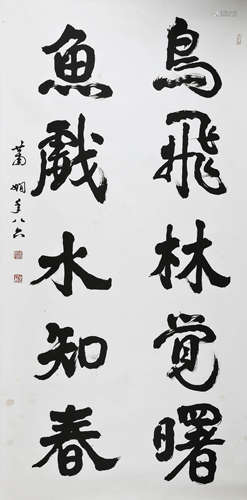 鳥飛林覚曙
魚戲水知春
蕭嫻年八六